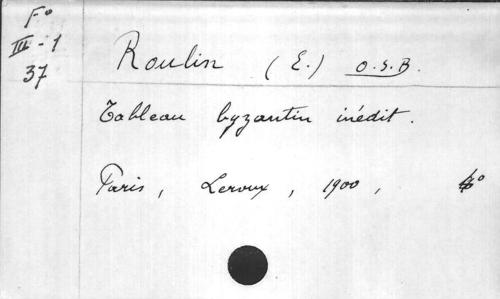 F°
III - 1
37
Roulin (E.) O.S.B.
Tableau byzantin inédit.
Paris, Leroux, 1900,